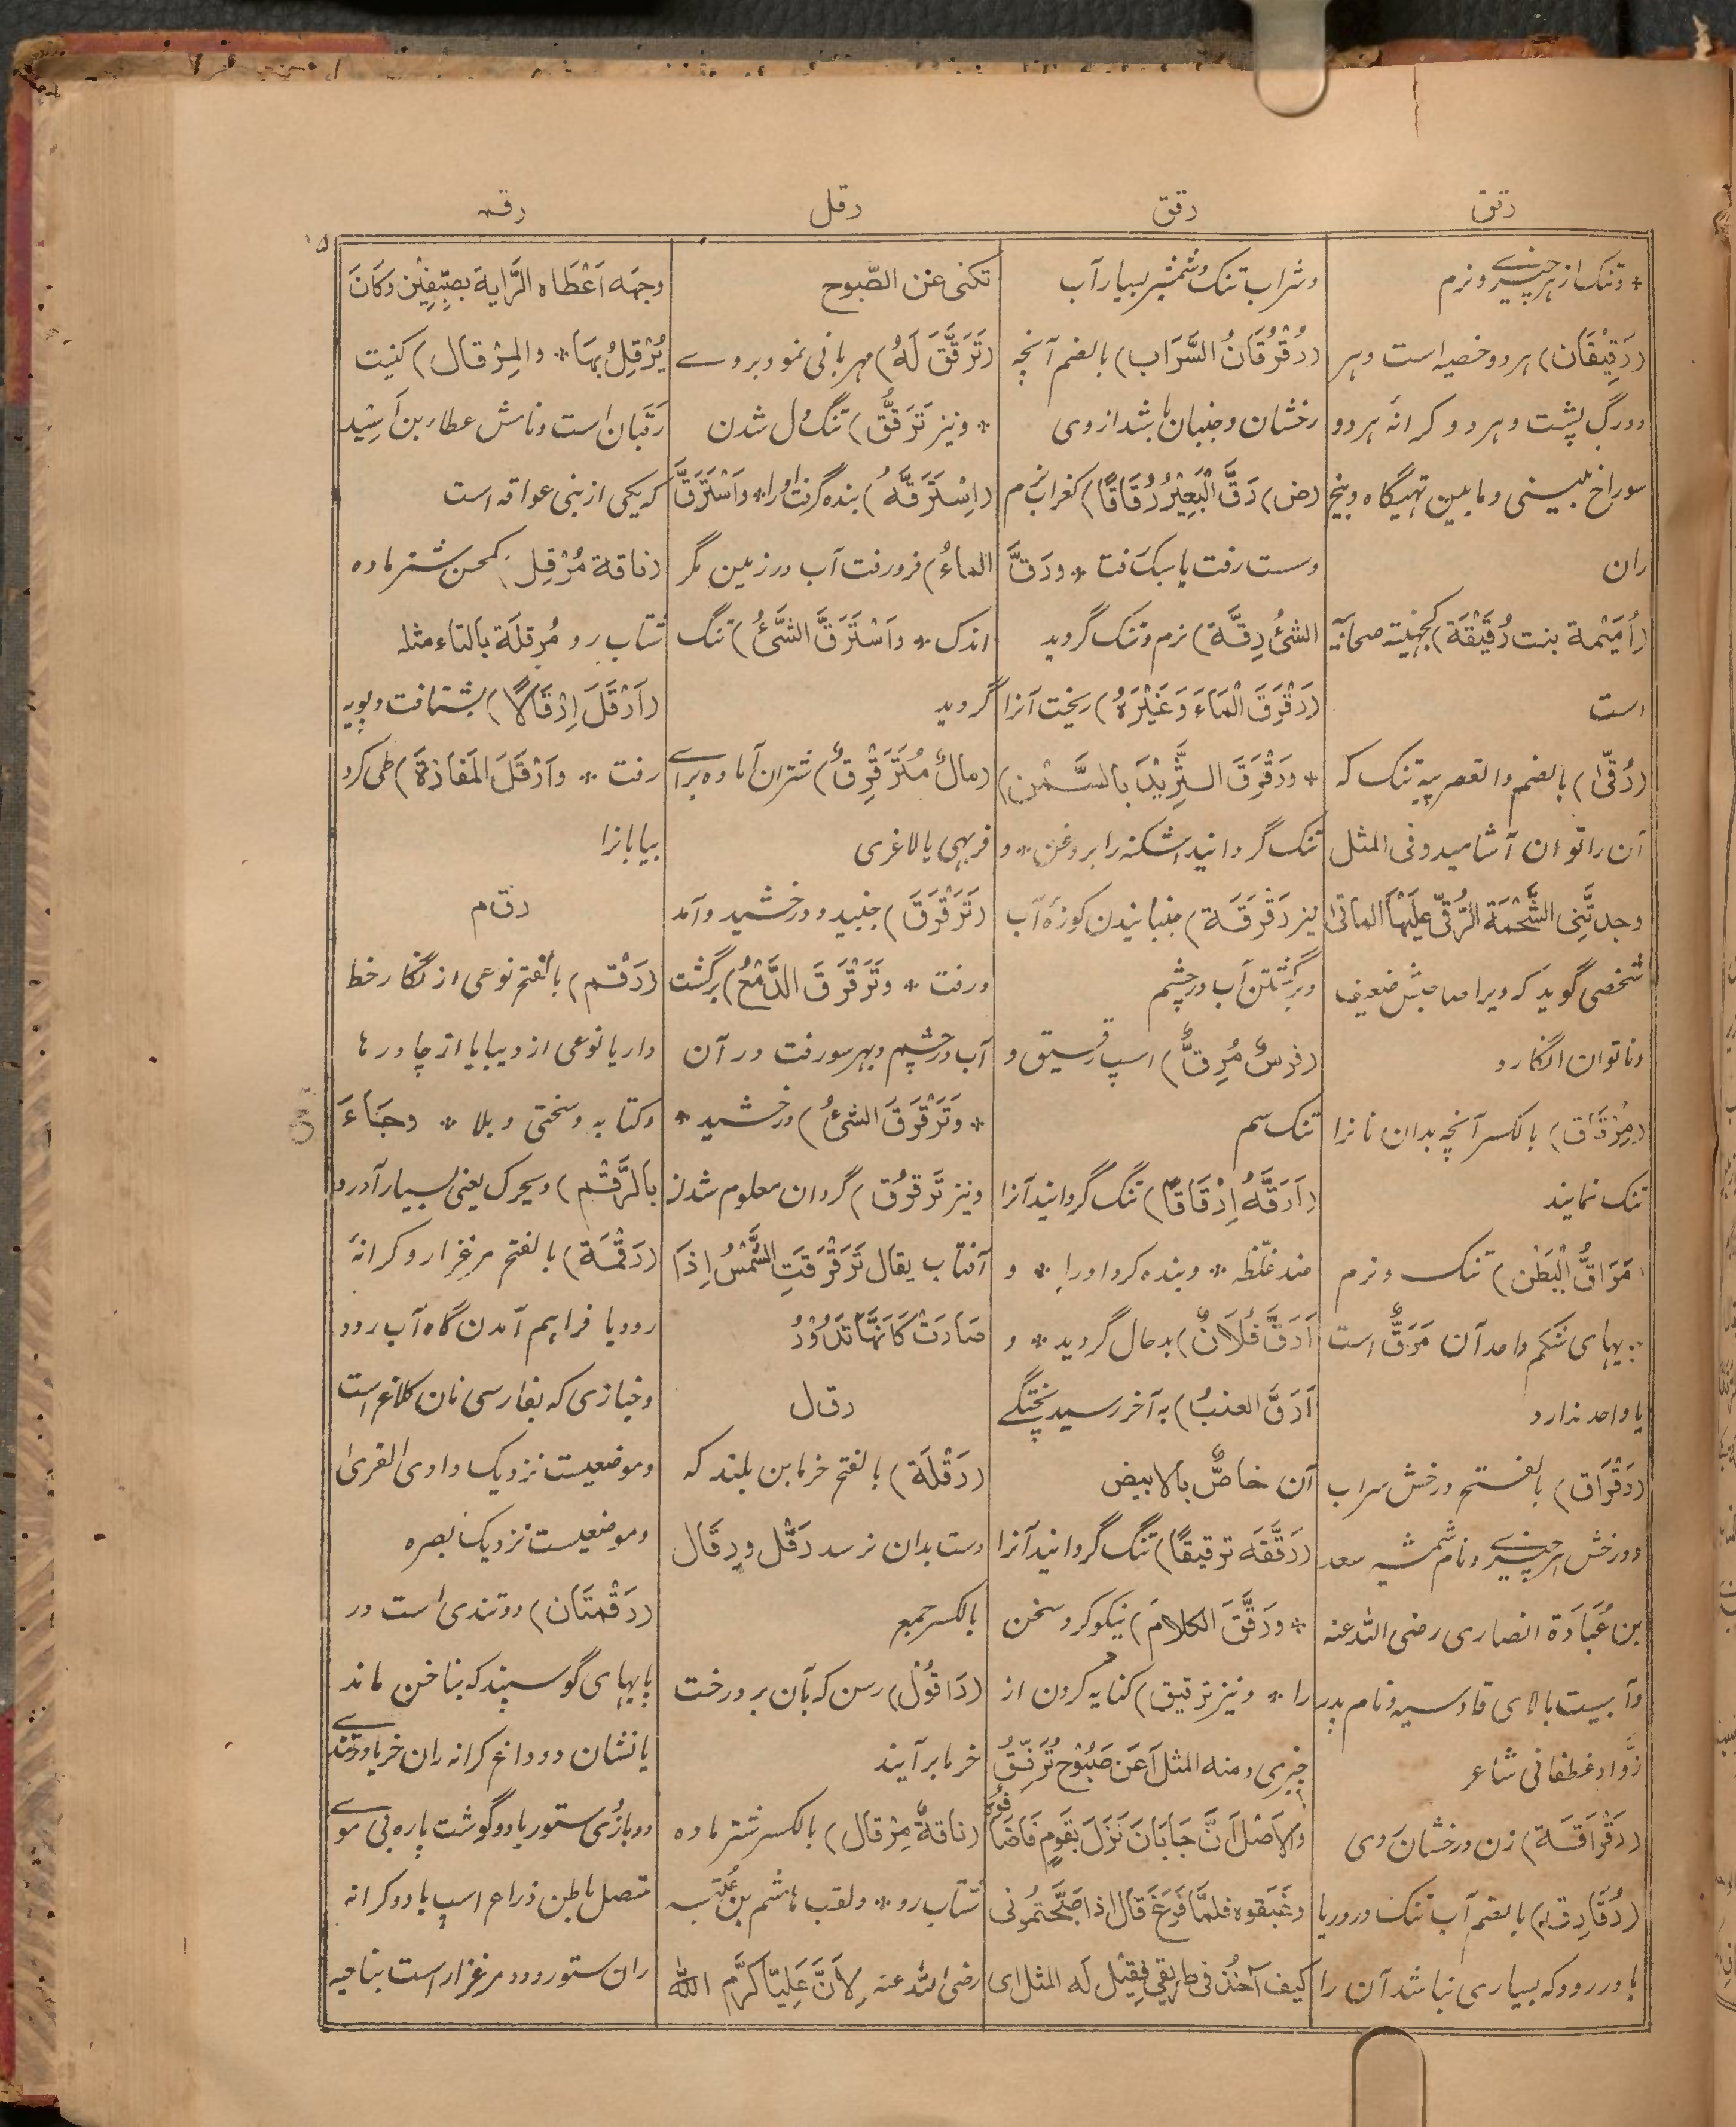 رقق
رقق
رقل
رقم
* و تنک از هر چیزے و نرم
(رَقِیْقَان) هر دو خصیه است و هر
دو رگ پشت و هر دو کرانهٔ هر دو
سوراخ بینی و ما بین تهیگاه و بیخ
ران
(اُمَیْمة بنت رُقَیْقَة) کجهینة صحابیّه
است
(رُقّیٰ) بالضم والقصر پیه تنک که
آن را توان آشامید و فی المثل
وجدتَّنِی الشَّحْمَةَ الرُّقّیٰ عَلَیْهَا المأتیٰ
شخصی گوید که ویرا صاحبش ضعیف
و ناتوان انگارد
(مِرْقَاق) بالکسر آنچه بدان نانرا
تنک نمایند
(مَرَاقُّ الْبَطْن) تنک و نرم
یهای شکم واحد آن مَرَقٌّ است
یا واحد ندارد
(رَقْرَاق) بالفتح درخش سراب
و درخش هر چیزے و نام شمشیر سعد
بن عُبَادَة انصاری رضی الله عنه
و آبیست بالای قادسیه و نام پدر
زوّاد غطفانی شاعر
(رَقْرَاقَة) زن درخشان روی
(رُقَارِق) بالضم آب تنک در دریا
یا در رود که بسیاری نباشد آن را
و شراب تنک و شمشیر بسیار آب
(رُقْرُقَانُ السَّرَاب) بالضم آنچه
رخشان و جنبان باشد از وی
(ض) رَقَّ الْبَعِیْرُ رُقَاقًا) کغراب نرم
و سست رفت یا سبک رفت * و رَقَّ
الشیُٔ رِقَّة) نرم و تنک گردید
(رَقْرَقَ الْمَاءَ وَغَیْرَهُ) ریخت آنرا
* وَ رَقْرَقَ الثَّرِیْدَ بالسَّمْن)
تنک گردانید اشکنه را بروغن * و
نیز رَقْرَقَة) جنبانیدن کوزهٔ آب
و برگشتن آب در چشم
(فرسٌ مُرِقٌّ) اسپ رقیق و
تنک سم
(اَرَقَّهُ اِرْقَاقًا) تنک گردانید آنرا
ضد غلّظه * و بنده کرد او را * و
اَرَقَّ فُلَانٌ) بد حال گردید * و
اَرَقَّ العنبُ) به آخر رسید پختگے
آن خاصٌّ بالابیض
(رَقَّقَه ترقیقًا) تنک گردانید آنرا
* و رَقَّقَ الکلامَ) نیکو کرد سخن
را * و نیز ترقیق) کنایه کردن از
چیزی و منه المثل اَعَن صَبُوْح تُرَقِّقُ
والاصْل اَنَّ جَابَانَ نَزَلَ بقَوم فَاَضَافُوْهُ
وغَبَقوه فلمَّا فَرَغَ قال اذا صَبَّحْتمُونی
کیف آخذ فی طریقی فقِیْل لَه المثل ای
تکنی عن الصّبوح
(تَرَقَّقَ لَهُ) مهربانی نمود بروے
* و نیز تَرَقُّق) تنک دل شدن
(اِسْتَرَقَّهُ) بنده گرفت او را * و اَسْتَرَقَّ
الماءُ) فرو رفت آب در زمین مگر
اندک * و اَسْتَرَقَّ الشَّیُٔ) تنک
گردید
(مالٌ مُتَرَقْرِقٌ) شتران آماده براے
فربهی یا لاغری
(تَرَقْرَقَ) جنبید و درخشید و آمد
و رفت * و تَرَقْرَقَ الدَّمْعُ) برگشت
آب در چشم و بهر سو رفت در آن
* وَ تَرَقْرَقَ الشیُٔ) درخشید *
و نیز تَرَقرُق) گردان معلوم شدن
آفتاب یقال تَرَقْرَقَتِ الشَّمْسُ اِذَا
صَارَتْ کَاَنَّهَا تَدُوْرُ
رقل
(رَقْلَة) بالفتح خرمابن بلند که
دست بدان نرسد رَقْل و رِقَال
بالکسر جمع
(رَاقُوْل) رسن که بآن بر درخت
خرما برآیند
(ناقةٌ مِرْقال) بالکسر شتر ماده
شتاب رو * و لقب هاشم بن عُتبه
رضی الله عنه لِاَنَّ عَلِیّا کرَّم الله
وجهَه اَعْطَاه الرَّایةَ بصِفِّیْن وَکَانَ
یُرْقِلُ بهَا * و المِرْقال) کنیت
زَقَبَان است و نامش عطاء بن اَسِیْد
که یکی از بنی عوافه است
(ناقة مُرْقِل) کمحسن شتر ماده
شتاب رو و مُرقِلَة بالتاء مثله
(اَرْقَلَ اِرْقَالًا) بشتافت و پویه
رفت * و اَرْقَلَ المَفازَة) طی کرد
بیابانرا
رقم
(رَقْم) بالفتح نوعی از نگار خط
دار یا نوعی از دیبا یا از چادرها
و کتابه و سختی و بلا * و جَاءَ
بالرَّقْم) و یحرک یعنی بسیار آورد
(رَقْمَة) بالفتح مرغزار و کرانهٔ
رود یا فراهم آمدن گاه آب رود
و خبازی که بفارسی نان کلاغ است
و موضعیست نزدیک وادی القریٰ
و موضعیست نزدیک بصره
(رَقْمَتَان) دو تندی است در
پایهای گوسپند که بناخن ماند
یا نشان دو داغ کرانه ران خر یا دو تندے
دو بازُی ستور یا دو گوشت پاره بی موے
متصل باطن ذراع اسپ یا دو کرانه
ران ستور و دو مرغزار است بناحیه